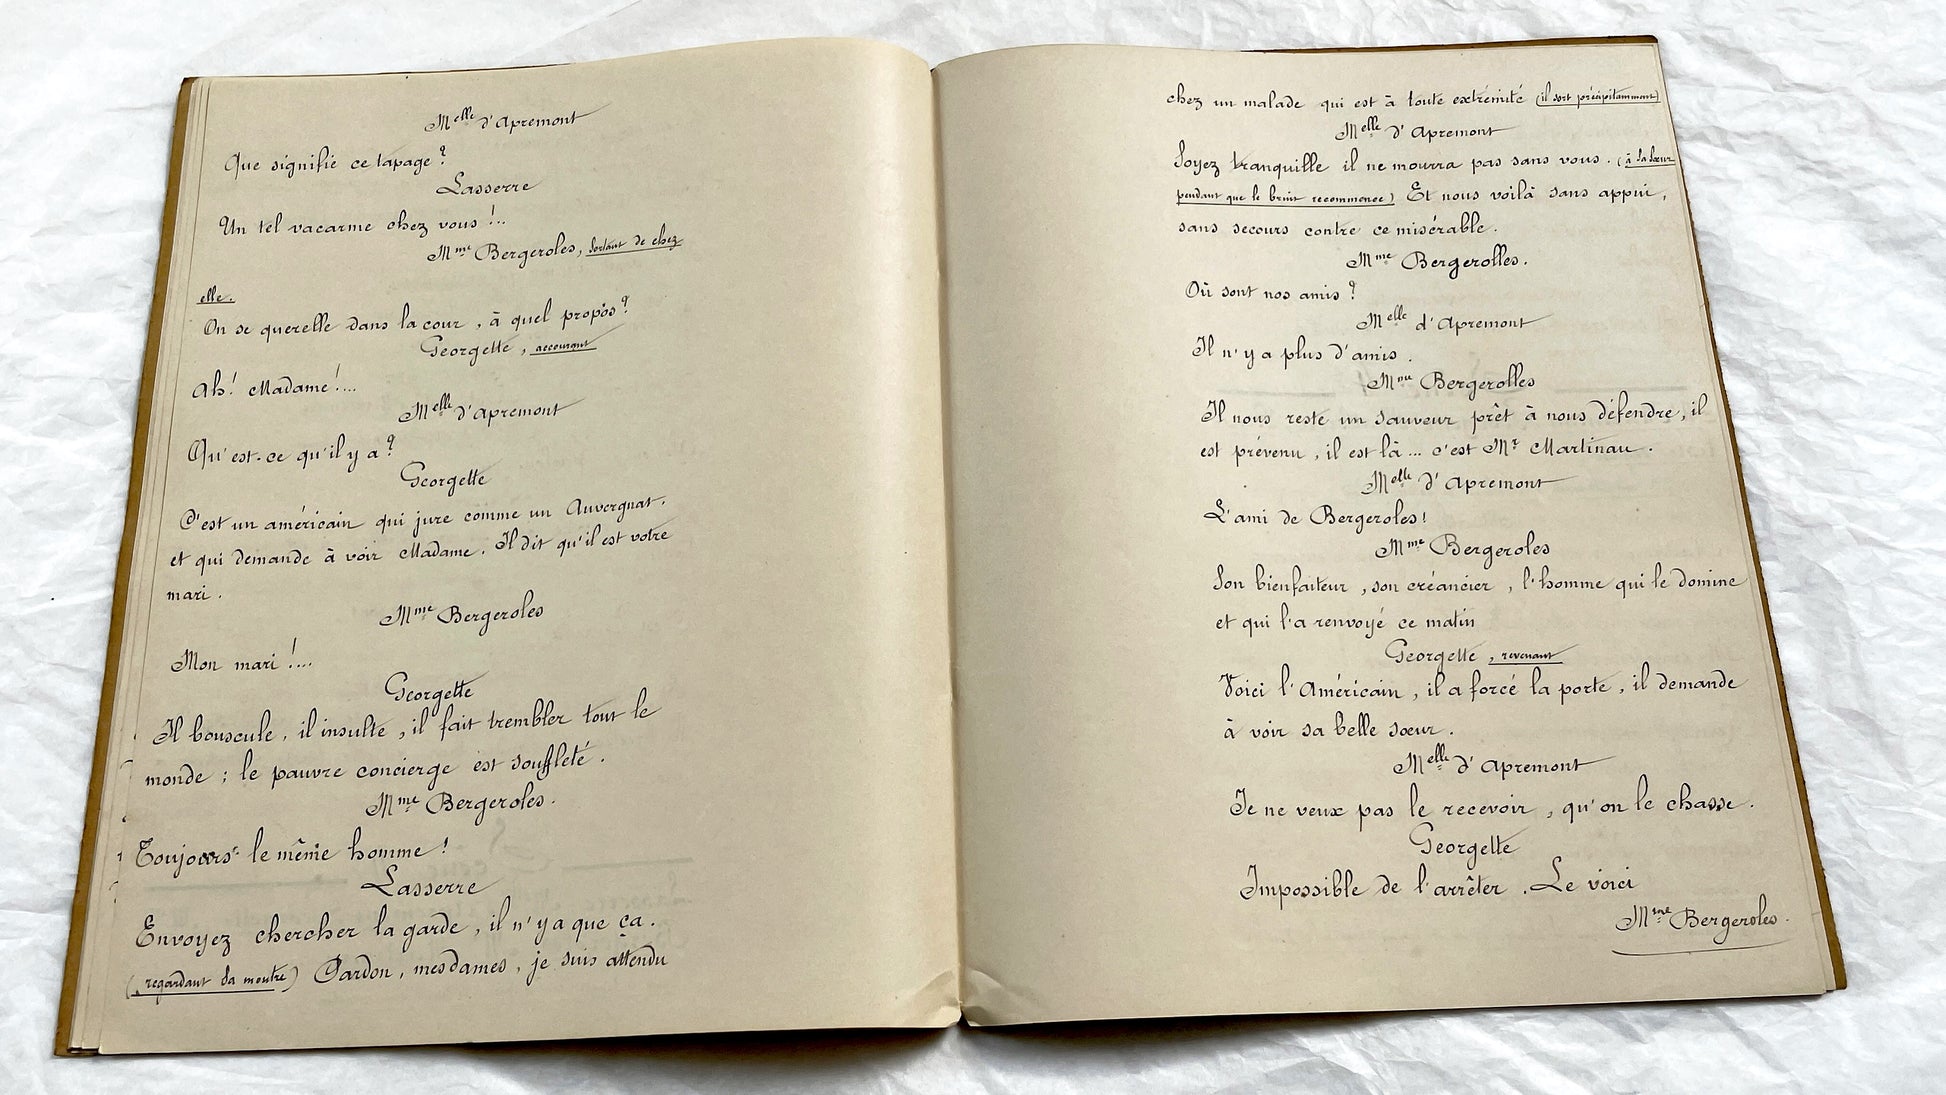 Melle d'Apremont
Que signifie ce tapage?
Lasserre
Un tel vacarme chez vous!...
Mme Bergeroles, sortant de chez
elle.
On se querelle dans la cour, à quel propos?
Georgette, accourant
Ah! Madame!...
Melle d'Apremont
Qu'est-ce qu'il y a?
Georgette
C'est un américain qui jure comme un Auvergnat.
et qui demande à voir Madame. Il dit qu'il est votre
mari.
Mme Bergeroles
Mon mari!...
Georgette
Il bouscule, il insulte, il fait trembler tout le
monde; le pauvre concierge est souffleté.
Mme Bergeroles.
Toujours le même homme!
Lasserre
Envoyez chercher la garde, il n'y a que ça.
(regardant sa montre) Pardon, mesdames, je suis attendu
chez un malade qui est à toute extrémité (il sort précipitamment)
Melle d'Apremont
Soyez tranquille il ne mourra pas sans vous. (à sa sœur
pendant que le bruit recommence) Et nous voilà sans appui,
sans secours contre ce misérable.
Mme Bergerolles.
Où sont nos amis?
Melle d'Apremont
Il n'y a plus d'amis.
Mme Bergerolles
Il nous reste un sauveur prêt à nous défendre, il
est prévenu, il est là... c'est Mr Martinau.
Melle d'Apremont
L'ami de Bergeroles!
Mme Bergeroles
Son bienfaiteur, son créancier, l'homme qui le domine
et qui l'a renvoyé ce matin
Georgette, revenant
Voici l'Américain, il a forcé la porte, il demande
à voir sa belle sœur.
Melle d'Apremont
Je ne veux pas le recevoir, qu'on le chasse.
Georgette
Impossible de l'arrêter. Le voici
Mme Bergeroles.